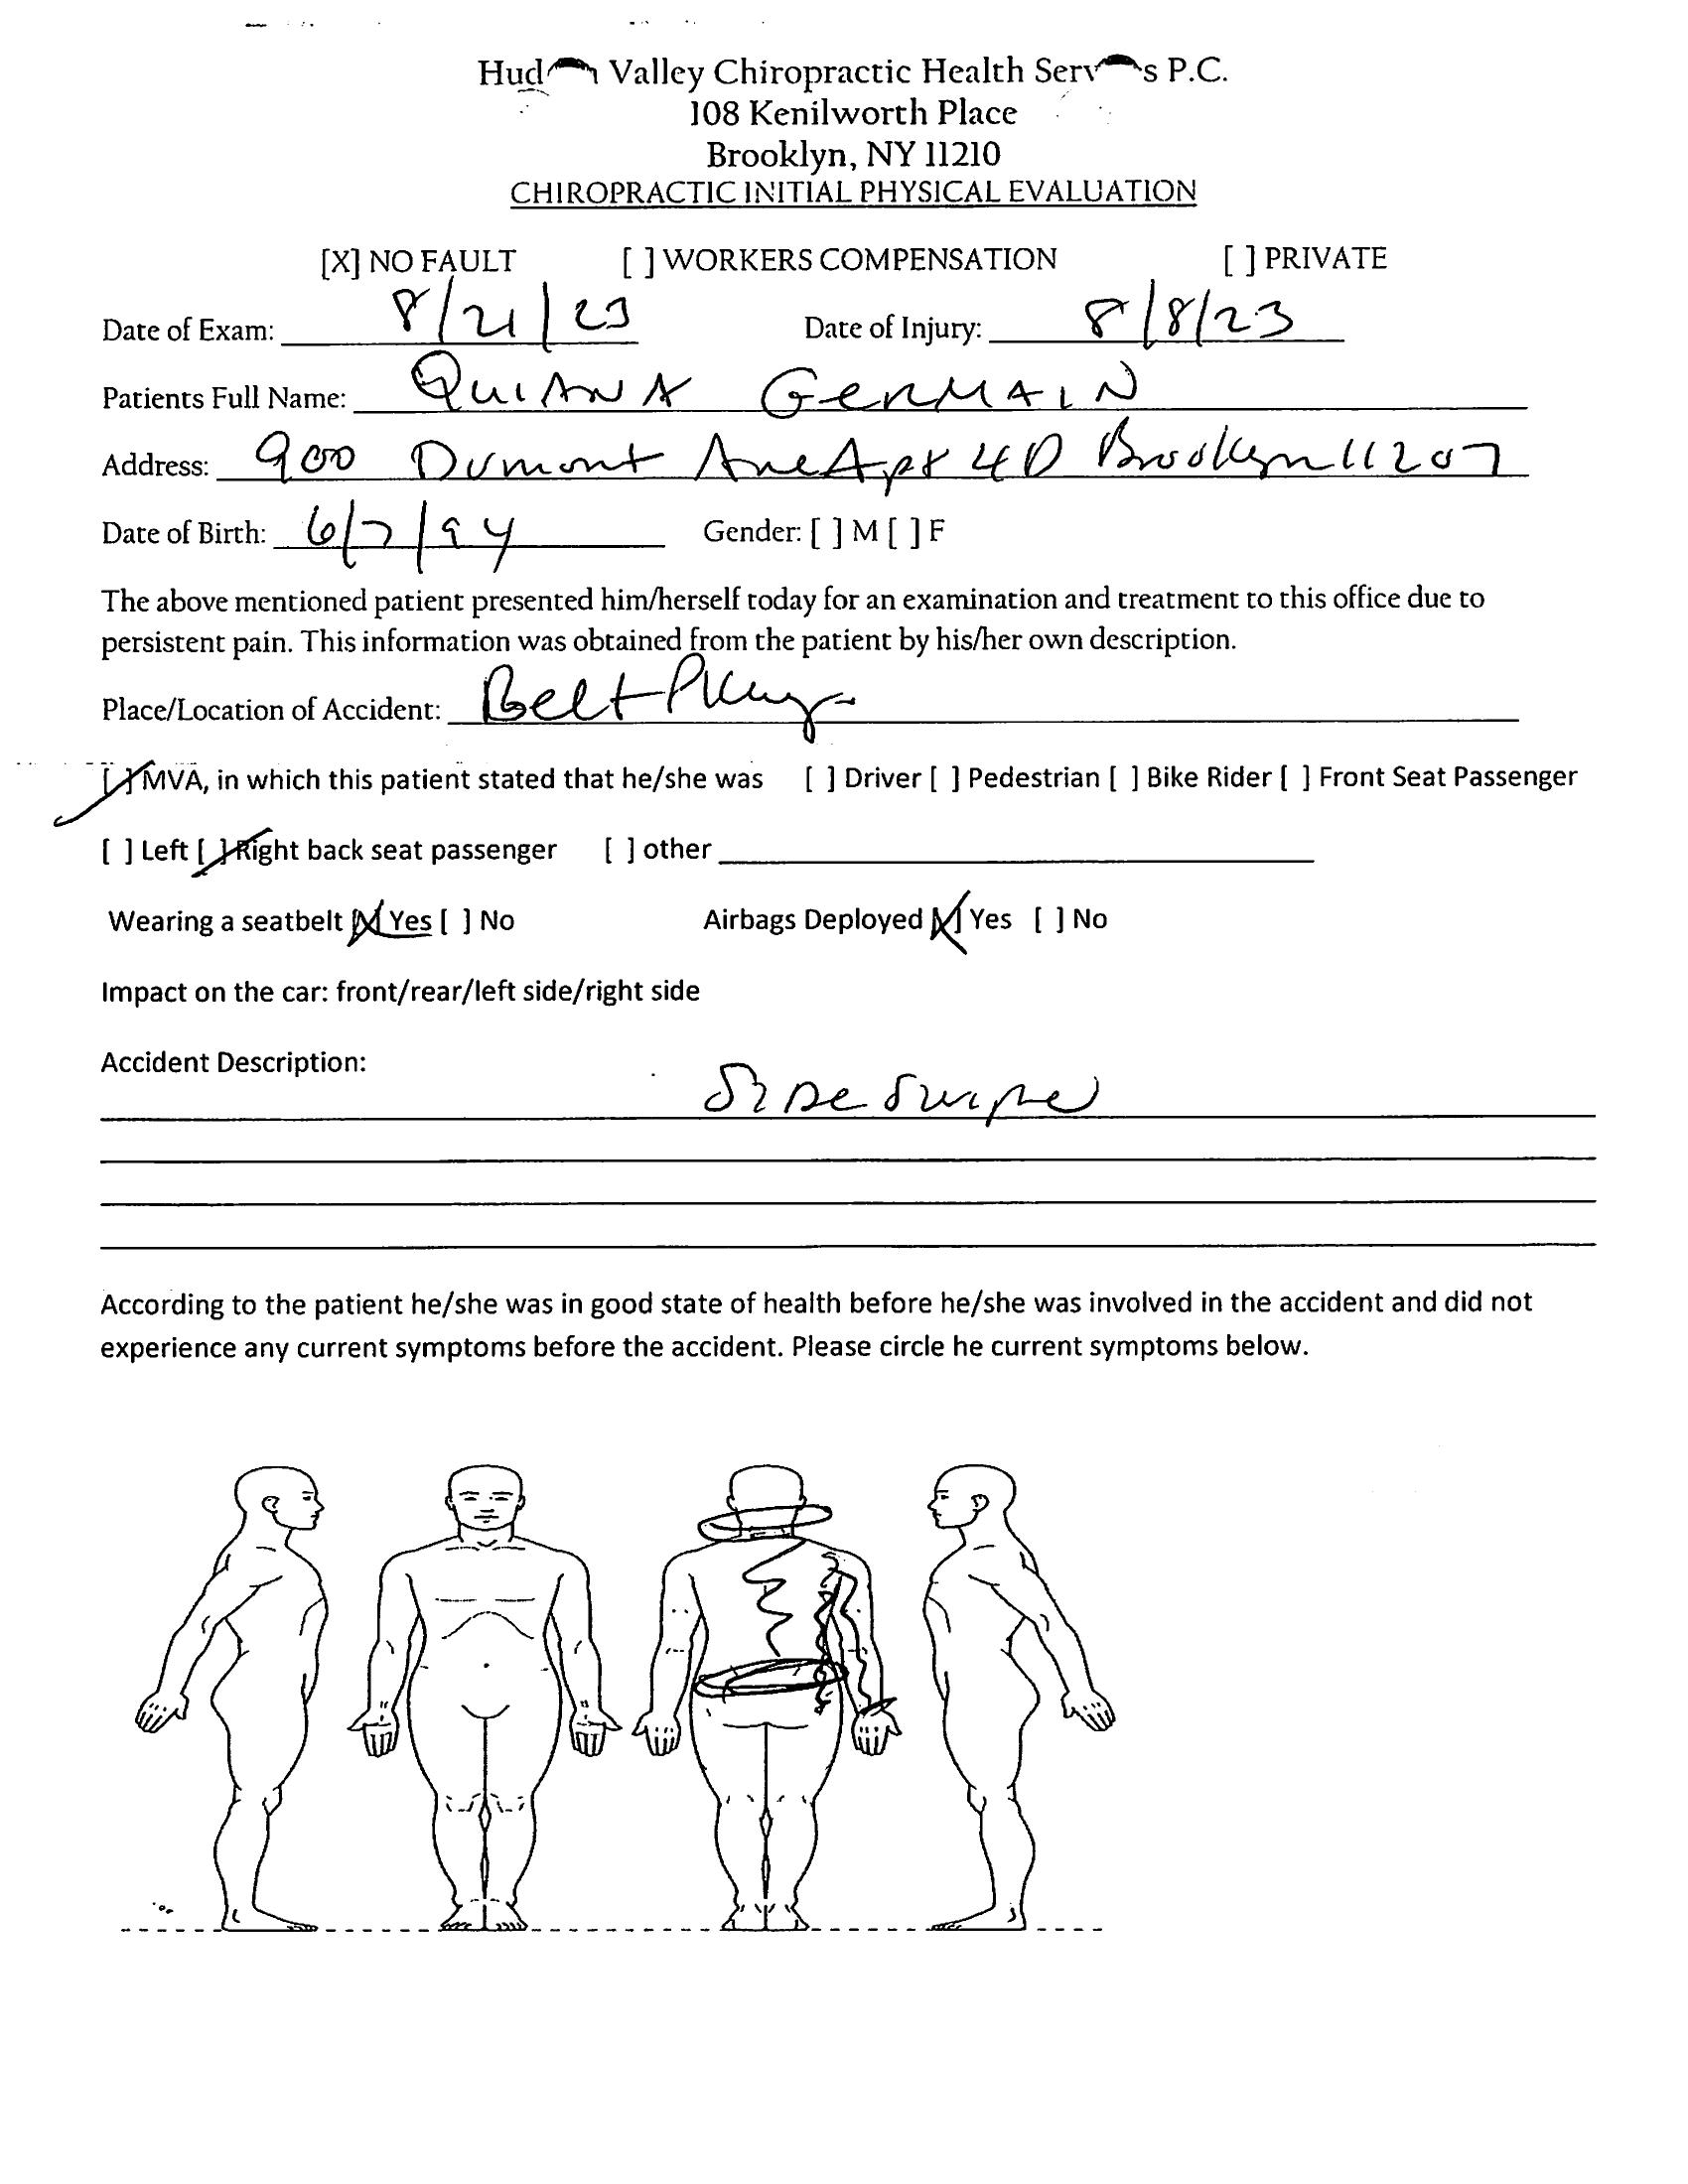 Hud n Valley Chiropractic Health Serv s P.C.
108 Kenilworth Place
Brooklyn, NY 11210
CHIROPRACTIC INITIAL PHYSICAL EVALUATION
[X] NO FAULT [ ] WORKERS COMPENSATION [ ] PRIVATE
Date of Exam: 8/21/23 Date of Injury: 8/8/23
Patients Full Name: QUIANA GERMAIN
Address: 900 Dumont Ave Apt 4D Brooklyn 11207
Date of Birth: 6/7/94 Gender: [ ] M [ ] F
The above mentioned patient presented him/herself today for an examination and treatment to this office due to
persistent pain. This information was obtained from the patient by his/her own description.
Place/Location of Accident: Belt Pkwy
[✓] MVA, in which this patient stated that he/she was [ ] Driver [ ] Pedestrian [ ] Bike Rider [ ] Front Seat Passenger
[ ] Left [✓] Right back seat passenger [ ] other
Wearing a seatbelt [X] Yes [ ] No Airbags Deployed [X] Yes [ ] No
Impact on the car: front/rear/left side/right side
Accident Description:
Side Swipe
According to the patient he/she was in good state of health before he/she was involved in the accident and did not
experience any current symptoms before the accident. Please circle he current symptoms below.